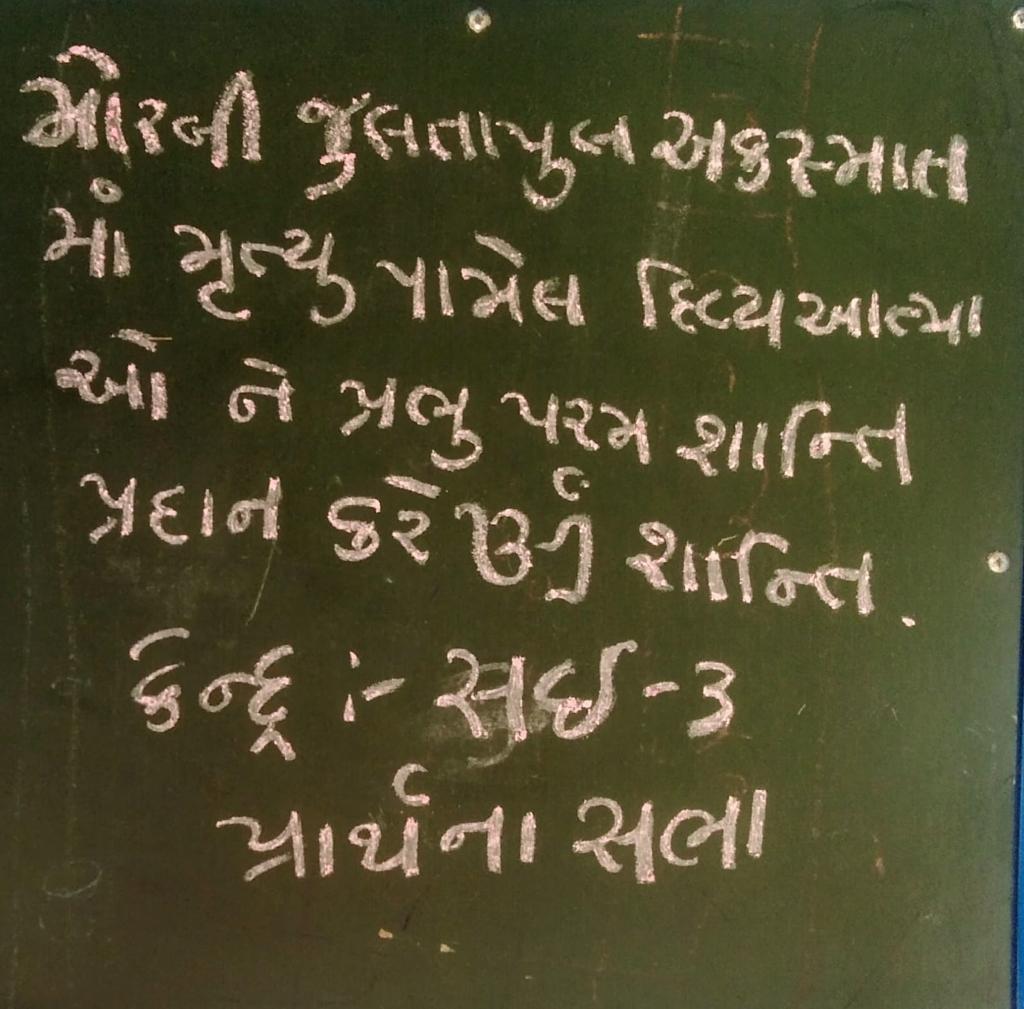 મોરબી જુલતાપુલ અકસ્માત
માં મૃત્યુ પામેલ દિવ્ય આત્મા
ઓ ને પ્રભુ પરમ શાન્તિ
પ્રદાન કરે ૐ શાન્તિ.
કેન્દ્ર :- સઈ-૩
પ્રાર્થના સભા